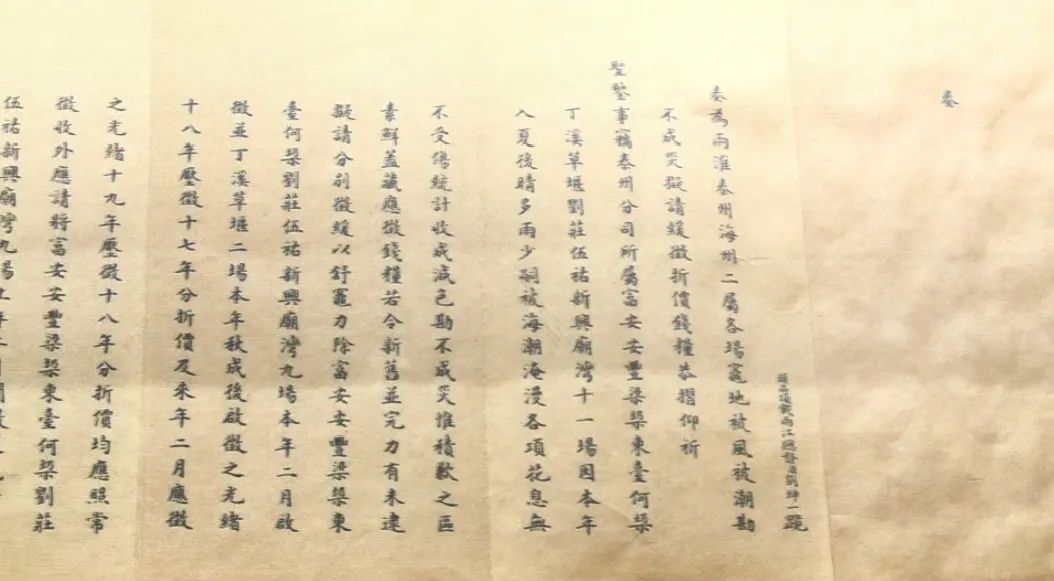 奏
頭品頂戴兩江總督臣劉坤一跪
奏為兩淮泰州海州二屬各場竈地被風被潮勘
不成災擬請緩徵折價錢糧恭摺仰祈
聖鑒事竊泰州分司所屬富安安豐梁垛東臺何垛
丁溪草堰劉莊伍祐新興廟灣十一場因本年
入夏後晴多雨少嗣被海潮淹漫各項花息無
不受傷統計收成減色勘不成災惟積歉之區
素鮮蓋藏應徵錢糧若令新舊並完力有未逮
擬請分別徵緩以舒竈力除富安安豐梁垛東
臺何垛劉莊伍祐新興廟灣九場本年二月啟
徵並丁溪草堰二場本年秋成後啟徵之光緒
十八年壓徵十七年分折價及來年二月應徵
之光緒十九年壓徵十八年分折價均應照常
徵收外應請將富安安豐梁垛東臺何垛劉莊
伍祐新興廟灣九場